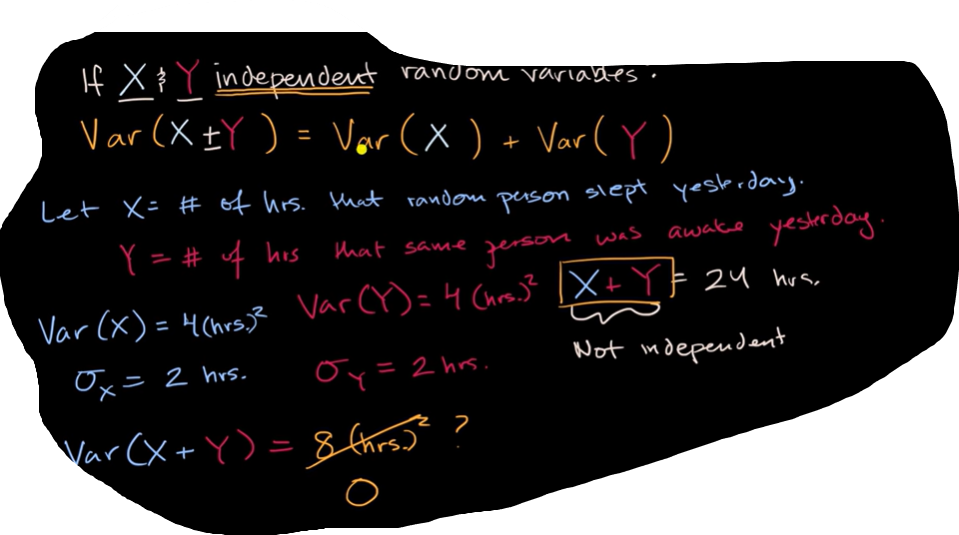 If X & Y independent random variables.
Var(X ± Y) = Var(X) + Var(Y)
Let X = # of hrs. that random person slept yesterday.
Y = # of hrs that same person was awake yesterday.
Var(X) = 4(hrs.)² Var(Y) = 4 (hrs.)² X + Y = 24 hrs.
Not independent
σₓ = 2 hrs. σY = 2 hrs.
Var(X + Y) = 8 (hrs.)² ?
0